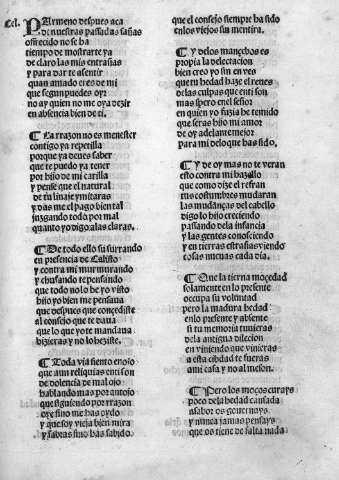 Cel. PArmeno despues aca
de nuestras passadas sañas
ofrecido no se ha
tiempo de mostrarte ya
de claro las mis entrañas
y para dar te a sentir
quan amado eres de mi
que segun puedes oyr
no ay quien no me oya dezir
en absencia bien de ti.
¶ La rrazon no es menester
contigo ya repetilla
porque ya deues saber
que te puedo ya tener
por hijo de mi
y pense que el natural
de tu linaje ymitaras
y das me el pago bien tal
juzgando todo por mal
quanto yo digo alas claras.
¶ De todo ello susurrando
en presencia de Calisto
y contra mi murmurando
y chufando te pensando
que todo no lo he yo visto
hijo yo bien me pensaua
que despues que concediste
al consejo que te daua
que lo que yo te mandaua
hizieras y no lo heziste.
¶ Toda via siento enojo
que aun reliquias en ti son
de dolencia de mal ojo
hablando mas por antojo
que siguiendo por rrazon
oye sino me has oydo
y que soy vieja bien mira
y sabras sino has sabido.
que el consejo siempre ha sido
en los viejos sin mentira.
¶ Y delos mançebos es
propia la delectacion
bien creo yo sin en ves
que tu hedad haze el reues
delas culpas que enti son
mas spero enel señor
en quien yo fuzia he tenido
que seras hijo mi amor
de oy adelante mejor
para mi delo que has sido,
¶ Y de oy mas no te veran
esto contra mi
que como dize el refran
tus costumbres mudaran
las mudanças del cabello
digo lo hijo creciendo
passando dela infancia
y las gentes conosciendo
y en tierras estrañas viendo
cosas nueuas cada dia.
¶ Que la tierna moçedad
solamente en lo presente
occupa su voluntad
pero la madura hedad
enlo presente y absente
si tu memoria tuuieras
dela antigua dilecion
en viniendo que vinieras
a esta cibdad te fueras
ami casa y no al meson.
¶ Pero los moços curays
poco dela hedad cansada
a sabor os gouernays
y nunca jamas pensays
que os tiene de falta nada